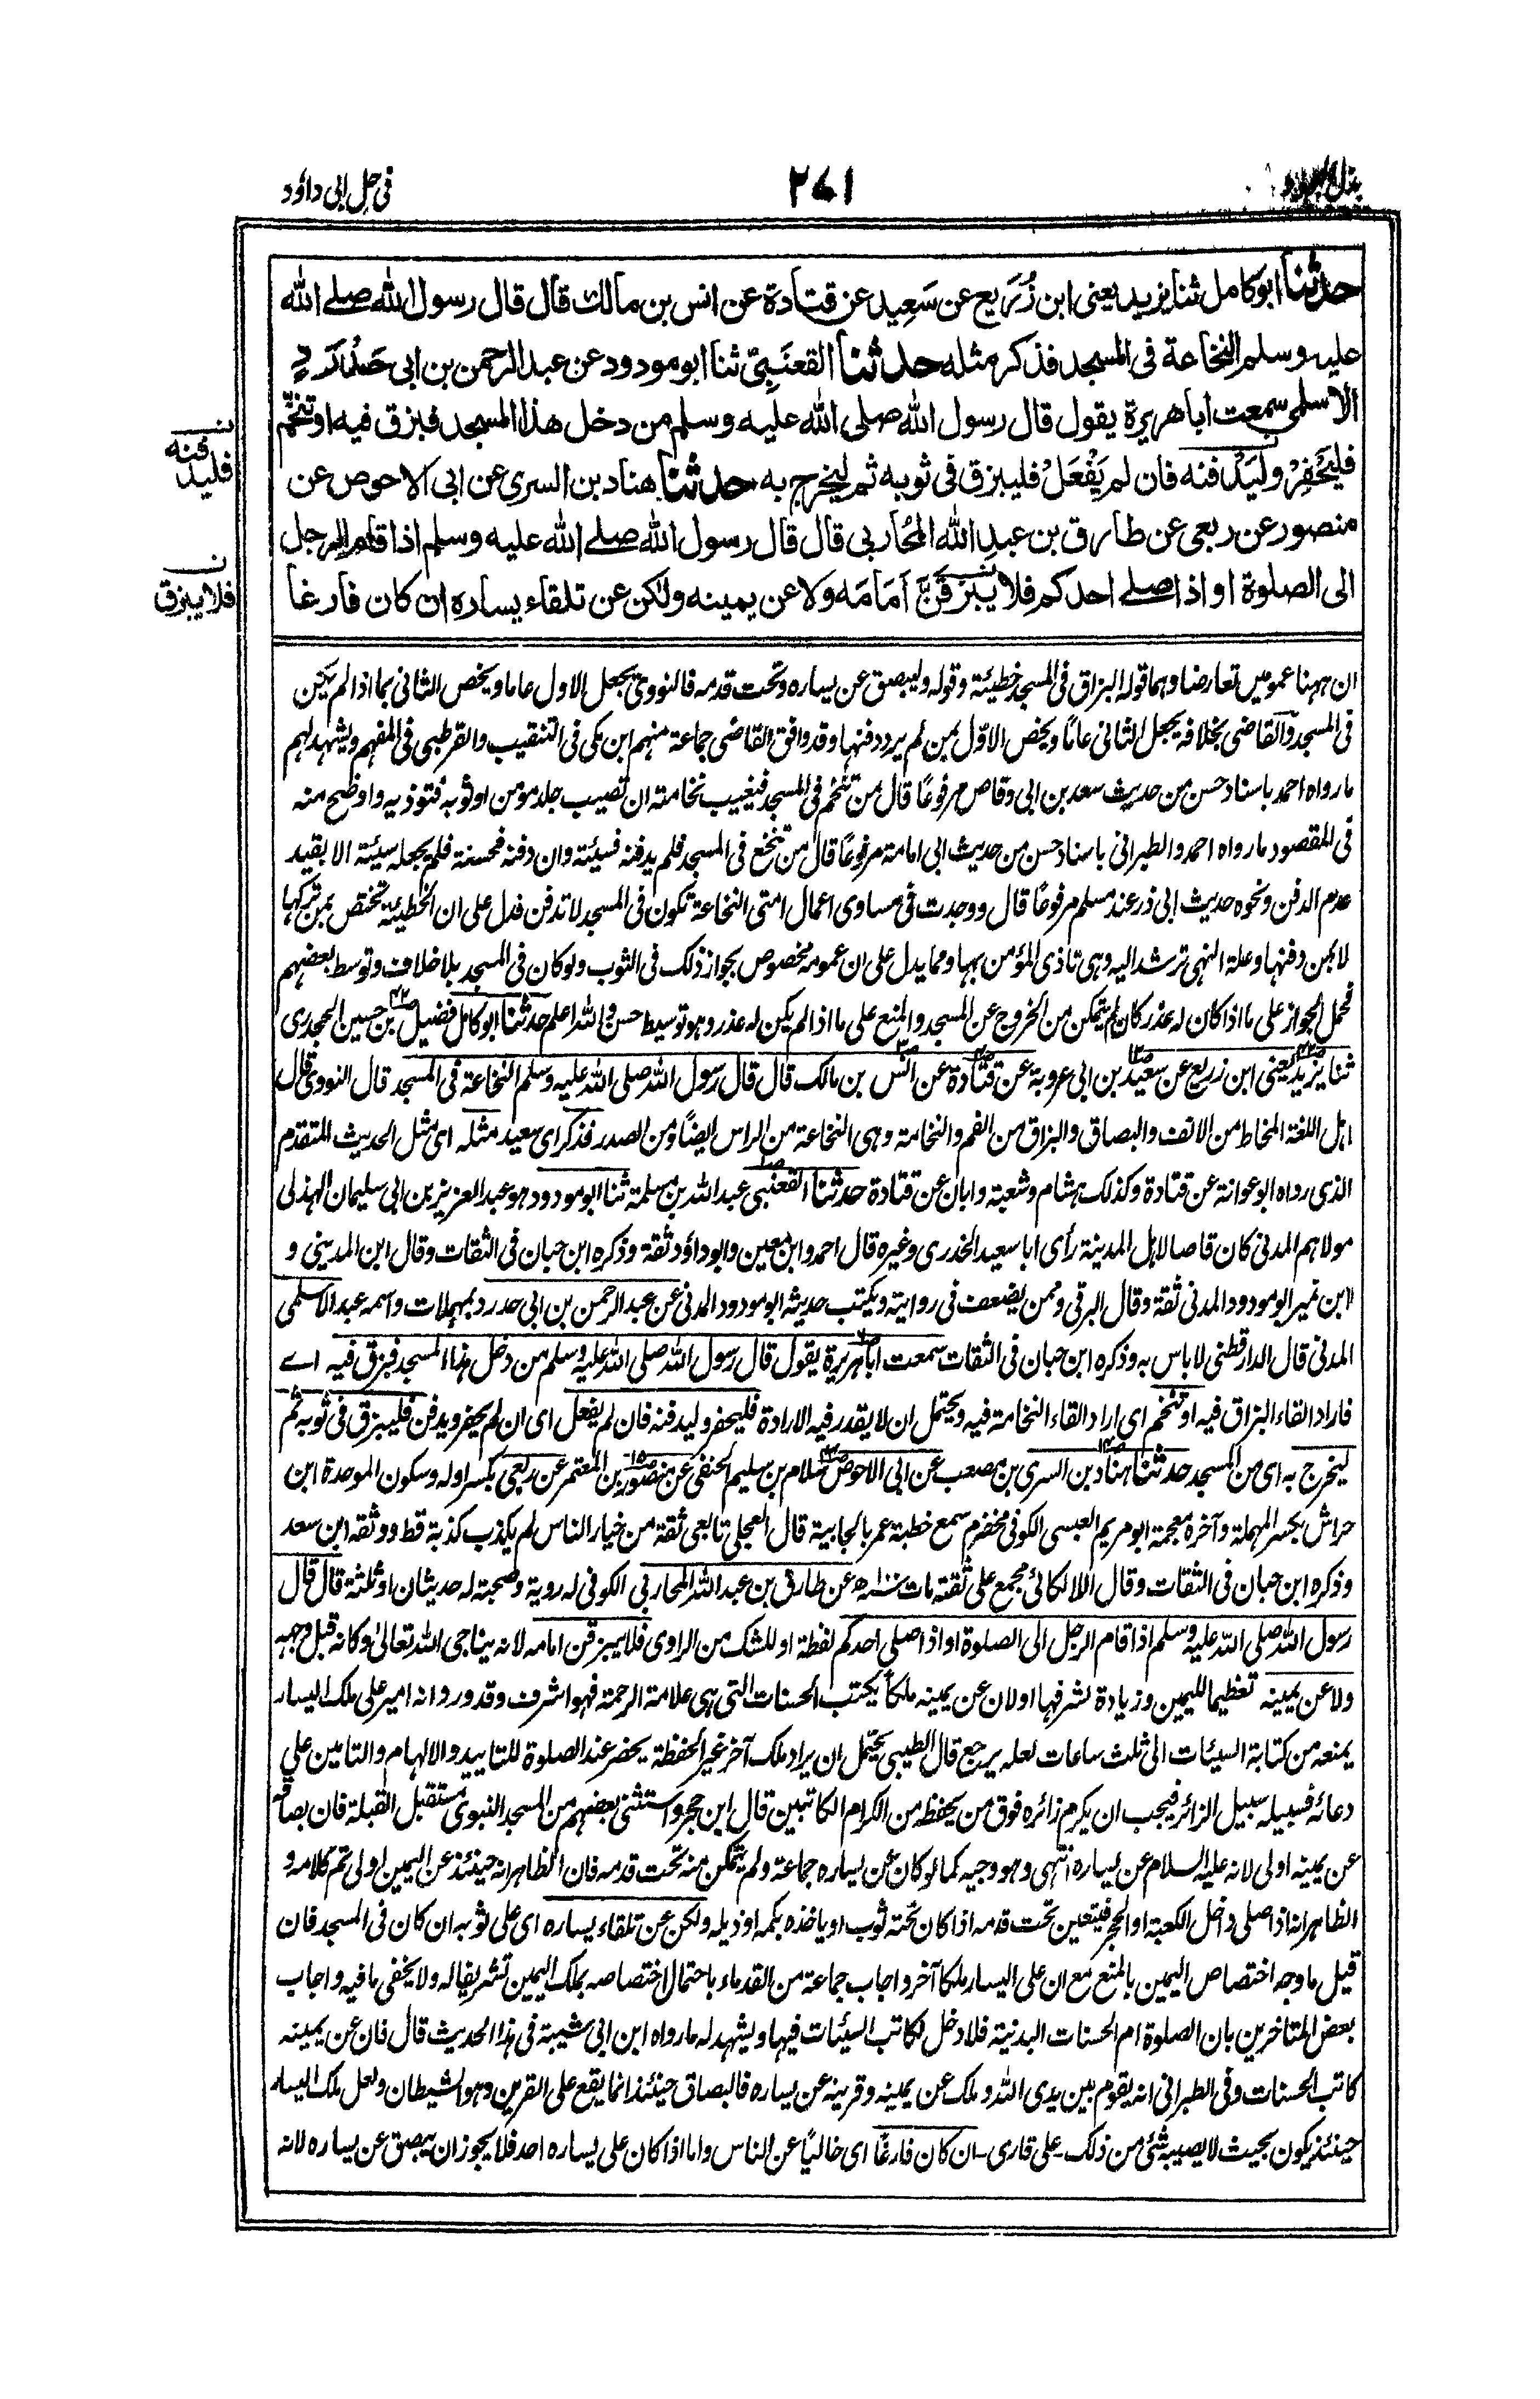 بذل المجهود
٢٤١
في حل ابي داؤد
حدثنا ابو كامل ثنا يزيد يعني ابن زُرَيع عن سَعِيد عن قتادة عن انس بن مالك قال قال رسول الله صلے الله
عليه وسلم النخاعة في المسجد فذكر مثله حدثنا القعنَبِيّ ثنا ابو مودود عن عبد الرحمن بن ابي حَدْرَدٍ
الاسلمي سمعت ابا هريرة يقول قال رسول الله صلى الله عليه وسلم من دخل هذا المسجد فبزق فيه او تنخّم
فليَحْفِرْ وليَدْفنه فان لم يَفْعَلْ فليبزق في ثوبه ثم ليخرج به حدثنا هناد بن السري عن ابي الاحوص عن
منصور عن ربعي عن طارق بن عبد الله المُحاربي قال قال رسول الله صلے الله عليه وسلم اذا قام الرجل
الى الصلوة او اذا صلے احدكم فلا يَبْزُقَنَّ أمَامَه ولا عن يمينه ولكن عن تلقاء يساره ان كان فارغا
ن
فليدفنه
ن
فلا يبزق
ان ههنا عمومين تعارضا وهما قوله البزاق في المسجد خطيئة وقوله وليبصق عن يساره وتحت قدمه فالنووي يجعل الاول عاما ويخص الثاني بما اذا لم يكن
في المسجد والقاضي بخلافه يجعل الثاني عامًا ويخص الاوّل بمن لم يرد دفنها وقد وافق القاضي جماعة منهم ابن مكي في التنقيب والقرطبي في المفهم ويشهد لهم
ما رواه احمد باسناد حسن من حديث سعد بن ابي وقاص مرفوعًا قال من تنخم في المسجد فيغيب نخامته ان تصيب جلد مؤمن او ثوبه فتوذيه واوضح منه
في المقصود ما رواه احمد والطبراني باسناد حسن من حديث ابي امامة مرفوعًا قال من تنخع في المسجد فلم يدفنه فسيئة وان دفنه فحسنة فلم يجعله سيئة الا بقيد
عدم الدفن ونحوه حديث ابي ذر عند مسلم مرفوعًا قال ووجدت في مساوى اعمال امتي النخاعة تكون في المسجد لا تدفن فدل على ان الخطيئة تختص بمن تركها
لا بمن دفنها وعلة النهي ترشد اليه وهي تاذي المؤمن بها ومما يدل على ان عمومه مخصوص بجواز ذلك في الثوب ولو كان في المسجد بلا خلاف وتوسط بعضهم
فحمل الجواز على ما اذا كان له عذر كان لم يتمكن من الخروج عن المسجد والمنع على ما اذا لم يكن له عذر وهو توسيط حسن والله اعلم حدثنا ابو كامل فضيل بن حسين الجحدري
ثنا يزيد يعني ابن زريع عن سعيد بن ابي عروبة عن قتادة عن انس بن مالك قال قال رسول الله صلى الله عليه وسلم النخاعة في المسجد قال النووي قال
اهل اللغة المخاط من الانف والبصاق والبزاق من الفم والنخامة وهي النخاعة من الراس ايضًا ومن الصدر فذكر اي سعيد مثله اي مثل الحديث المتقدم
الذى رواه ابو عوانة عن قتادة وكذلك هشام وشعبة وابان عن قتادة حدثنا القعنبي عبد الله بن مسلمة ثنا ابو مودود هو عبد العزيز بن ابي سليمان الهذلي
مولاهم المدني كان قاصا لاهل المدينة رأى ابا سعيد الخدري وغيره قال احمد وابن معين وابو داؤد ثقة وذكره ابن حبان في الثقات وقال ابن المديني و
ابن نمير ابو مودود المدني ثقة وقال البرقي وممن يضعف في روايته ويكتب حديثه ابو مودود المدني عن عبد الرحمن بن ابي حدرد بمهملات واسمه عبد الاسلمي
المدني قال الدارقطني لا باس به وذكره ابن حبان في الثقات سمعت ابا هريرة يقول قال رسول الله صلى الله عليه وسلم من دخل هذا المسجد فبزق فيه اے
فاراد القاء البزاق فيه او تنخم اي اراد القاء النخامة فيه ويحتمل ان لا يقدر فيه الارادة فليحفر وليدفنه فان لم يفعل اى ان لم يحفر ويدفن فليبزق في ثوبه ثم
ليخرج به اى من المسجد حدثنا هناد بن السري بن مصعب عن ابي الاحوص سلام بن سليم الحنفي عن منصور بن المعتمر عن ربعي بكسر اوله وسكون الموحدة ابن
حراش بكسر المهملة وآخره معجمة ابو مريم العبسي الكوفي مخضرم سمع خطبة عمر بالجابية قال العجلي تابعي ثقة من خيار الناس لم يكذب كذبة قط ووثقه ابن سعد
وذكره ابن حبان في الثقات وقال اللالكائي مجمع على ثقته مات سنه عن طارق بن عبد الله المحاربي الكوفي له روية وصحبة له حديثان او ثلثة قال قال
رسول الله صلى الله عليه وسلم اذا قام الرجل الى الصلوة او اذا صلى احدكم لفظة او للشك من الراوى فلا يبزقن امامه لانه يناجى الله تعالىٰ وكانه قبل وجهه
ولا عن يمينه تعظيما لليمين وزيادة لشرفها او لان عن يمينه ملكا يكتب الحسنات التي هي علامة الرحمة فهو اشرف وقد ورد انه امير على ملك اليسار
يمنعه من كتابة السيئات الى ثلث ساعات لعله يرجع قال الطيبي يحتمل ان يراد ملك آخر غير الحفظة يحضر عند الصلوة للتاييد والالهام والتامين على
دعائه فسبيله سبيل الزائر فيجب ان يكرم زائره فوق من يحفظه من الكرام الكاتبين قال ابن حجر واستثنى بعضهم من المسجد النبوي مستقبل القبلة فان بصاقه
عن يمينه اولى لانه عليه السلام عن يساره انتهى وهو وجيه كما لو كان عن يساره جماعة ولم يتمكن منه تحت قدمه فان الظاهر انه حينئذ عن اليمين اولى تم كلامه و
الظاهر انه اذا صلى داخل الكعبة او الحجر فيتعين تحت قدمه اذا كان تحته ثوب او ياخذه بكمه او ذيله ولكن عن تلقاء يساره اى على ثوبه ان كان في المسجد فان
قيل ما وجه اختصاص اليمين بالمنع مع ان على اليسار ملكا آخر واجاب جماعة من القدماء باحتمال اختصاصه بملك اليمين تشريفا له ولا يخفى ما فيه واجاب
بعض المتاخرين بان الصلوة ام الحسنات البدنية فلا دخل لكاتب السيئات فيها ويشهد له ما رواه ابن ابي شيبة في هذا الحديث قال فان عن يمينه
كاتب الحسنات وفي الطبراني انه يقوم بين يدى الله وملك عن يمينه وقرينه عن يساره فالبصاق حينئذ انما يقع على القرين وهو الشيطان ولعل ملك اليسار
حينئذ يكون بحيث لا يصيبه شئ من ذلك - علي قاري - ان كان فارغًا اى خاليًا عن الناس واما اذا كان على يساره احد فلا يجوز ان يبصق عن يساره لانه